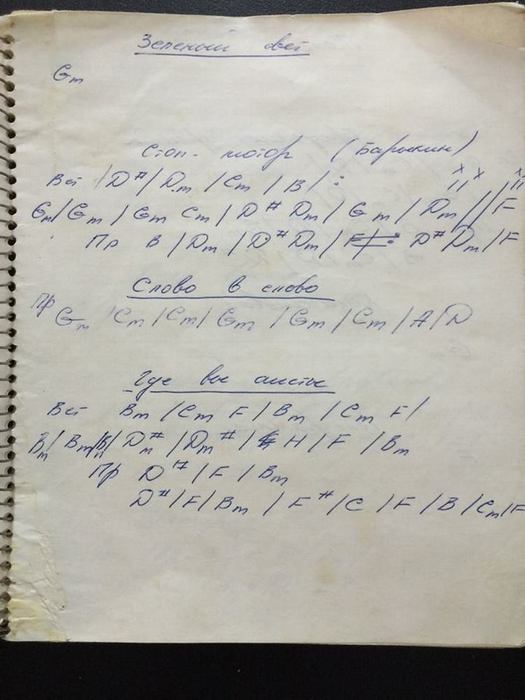 Зеленый свет
Gm
Стоп-мотор (Барыкин)
Вст / D# / Dm / Cm / B / :
Gm / Gm / Gm Cm / D# Dm / Gm / Dm // F
Пр B / Dm / D# Dm / F D# / Dm / F
Слово в слово
Пр Gm / Cm / Cm / Gm / Gm / Cm / A / D
Где вы аисты
Вст Bm / Cm F / Bm / Cm F /
Bm / Bm / Dm# / Dm# / H / F / Bm
Пр D# / F / Bm
D# / F / Bm / F# / C / F / B / Cm / F